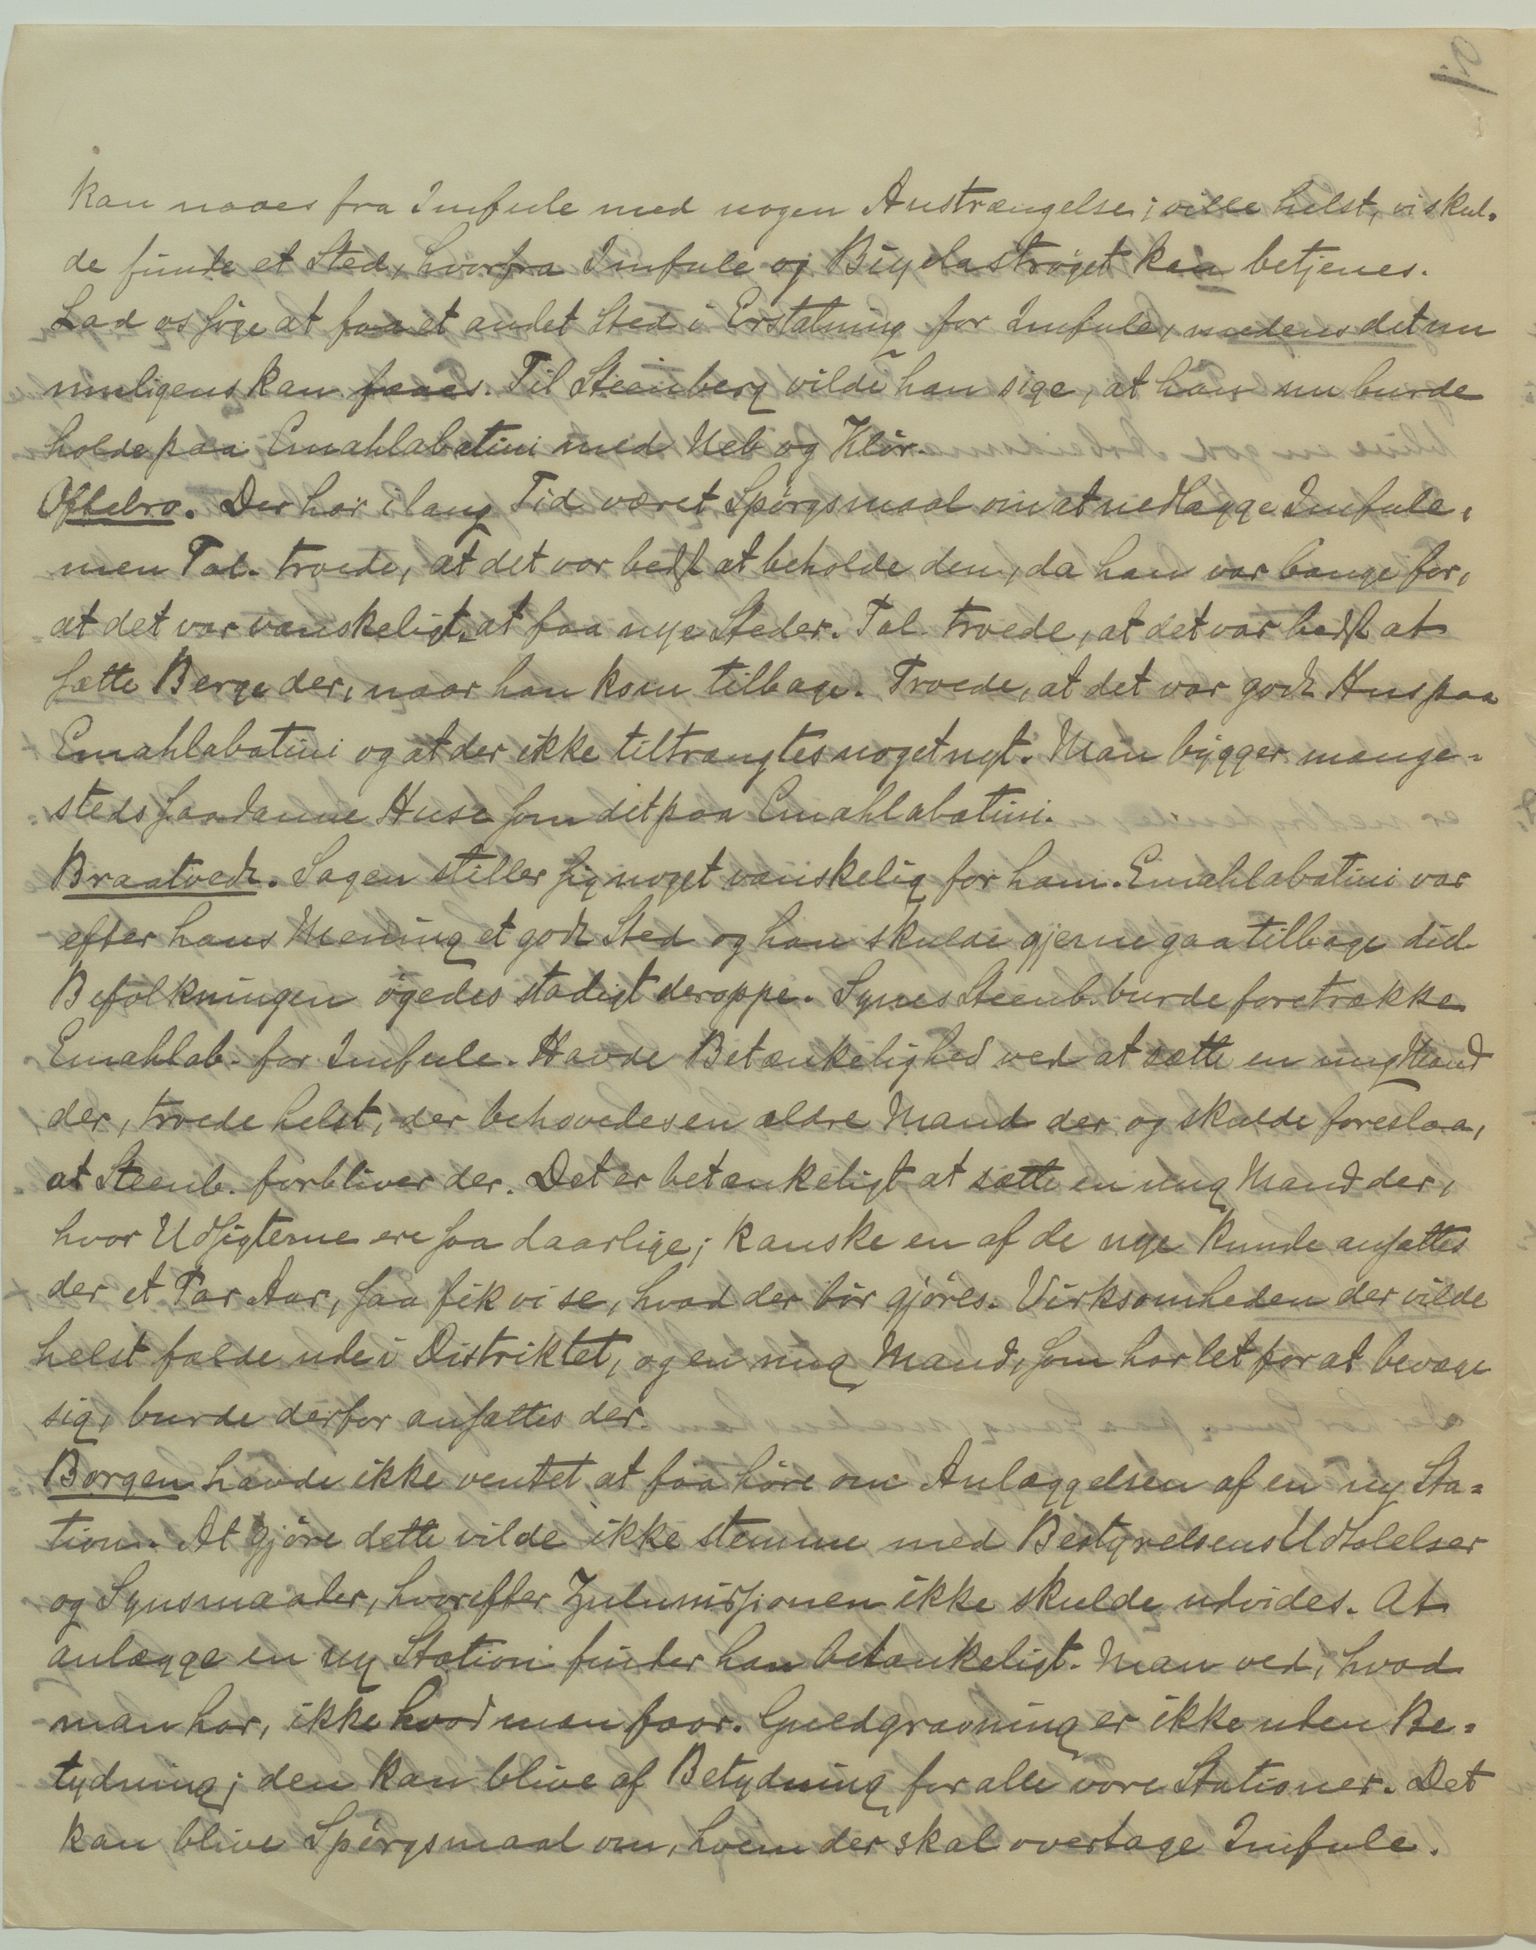 kan naaes fra Imfule med nogen Anstrængelse; ville helst, vi skul-
de finde et Sted, hvorfra Imfule og Biyelastrøget kan betjenes.
Lad os søge at faa et andet Sted i Erstatning for Imfule, medens det nu
muligens kan faaes. Til Steenberg vilde han sige, at han nu burde
holde paa Emahlabatini med Neb og Klør.
Oftebro. Der har i lang Tid været Spørgsmaal om at nedlægge Imfule,
men Tal. troede, at det var bedst at beholde den, da han var bange for,
at det var vanskeligt at faa nye Steder. Tal. troede, at det var bedst at
sætte Berge der, naar han kom tilbage. Troede, at det var godt Hus paa
Emahlabatini og at der ikke tiltrængtes noget nyt. Man bygger mange-
steds saadanne Huse som det paa Emahlabatini.
Braatvedt. Sagen stiller sig noget vanskelig for ham. Emahlabatini var
efter hans Mening et godt Sted og han skulde gjerne gaa tilbage did.
Befolkningen øgedes stadigt deroppe. Synes Steenb. burde foretrække
Emahlab. for Imfule. Havde Betænkelighed ved at sætte en ung Mand
der, troede helst, der behøvedes en ældre Mand der og skulde foreslaa,
at Steenb. forbliver der. Det er betænkeligt at sætte en ung Mand der,
hvor Udsigterne ere saa daarlige; kanske en af de nye kunde ansættes
der et Par Aar, saa fik vi se, hvad der bør gjøres. Virksomheden der vilde
helst falde ude i Distriktet, og en ung Mand, som har let for at bevæge
sig, burde derfor ansættes der.
Borgen havde ikke ventet at faa høre om Anlæggelsen af en ny Sta-
tion. At gjøre dette vilde ikke stemme med Bestyrelsens Udtalelser
og Synsmaader, hvorefter Zulumissionen ikke skulde udvides. At
anlægge en ny Station finder han betænkeligt. Man ved, hvad
man har, ikke hvad man faar. Guldgravning er ikke uden Be-
tydning; den kan blive af Betydning for alle vore Stationer. Det
kan blive Spørgsmaal om, hvem der skal overtage Imfule.